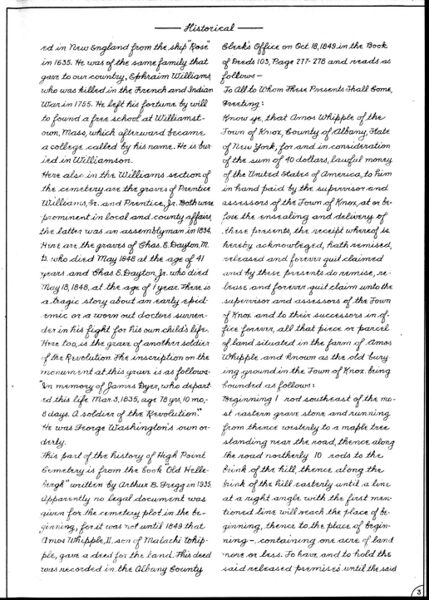 Historical
ed in New England from the ship "Rose"
in 1635. He was of the same family that
gave to our country, Ephraim Williams,
who was killed in the French and Indian
War in 1755. He left his fortune by will
to found a free school at Williamst-
own, Mass, which afterward became
a college called by his name. He is bur-
ied in Williamson.
Here also in the Williams section of
the cemetery are the graves of Prentice
Williams, Sr. and Prentice, Jr. Both were
prominent in local and county affairs,
the latter was an assemblyman in 1834.
Here are the graves of Chas. E. Dayton, M.
D. who died May 1848 at the age of 41
years and Chas E. Dayton, Jr. who died
May 18, 1848, at the age of 1 year. There is
a tragic story about an early epid-
emic or a worn out doctors surren-
der in his fight for his own child's life.
Here too, is the grave of another soldier
of the Revolution. The inscription on the
monument at this grave is as follows:
"In memory of James Dyer, who depart-
ed this life Mar 3, 1835, age 78 yrs, 10 mo,
8 days. A soldier of the Revolution."
He was George Washington's own or-
derly.
This part of the history of High Point
Cemetery is from the book "Old Helle-
bergh" written by Arthur B. Gregg in 1935.
Apparently no legal document was
given for the cemetery plot in the be-
ginning, for it was not until 1849 that
Amos Whipple, II, son of Malachi Whip-
ple, gave a deed for the land. This deed
was recorded in the Albany County
Clerk's Office on Oct. 18, 1849 in the Book
of Deeds 103, Page 277-278 and reads as
follows-
To All to Whom These Presents Shall Come,
Greeting:
Know ye, that Amos Whipple of the
Town of Knox, County of Albany, State
of New York, for and in consideration
of the sum of 40 dollars, lawful money
of the United States of America, to him
in hand paid by the supervisor and
assessors of the Town of Knox, at or be-
fore the ensealing and delivery of
these presents, the receipt whereof is
hereby acknowledged, hath remised,
released and forever quit claimed
and by these presents do remise, re-
lease, and forever quit claim unto the
supervisor and assessors of the Town
of Knox and to their successors in of-
fice forever, all that piece or parcel
of land situated in the farm of Amos
Whipple and known as the old bury-
ing ground in the Town of Knox being
bounded as follows:
Beginning 1 rod southeast of the mo-
st eastern grave stone and running
from thence westerly to a maple tree
standing near the road, thence along
the road northerly 10 rods to the
brink of the hill, thence along the
brink of the hill easterly until a line
at a right angle with the first men-
tioned line will reach the place of be-
ginning, thence to the place of begin-
ning - containing one acre of land
more or less. To have and to hold the
said released premises until the said
3